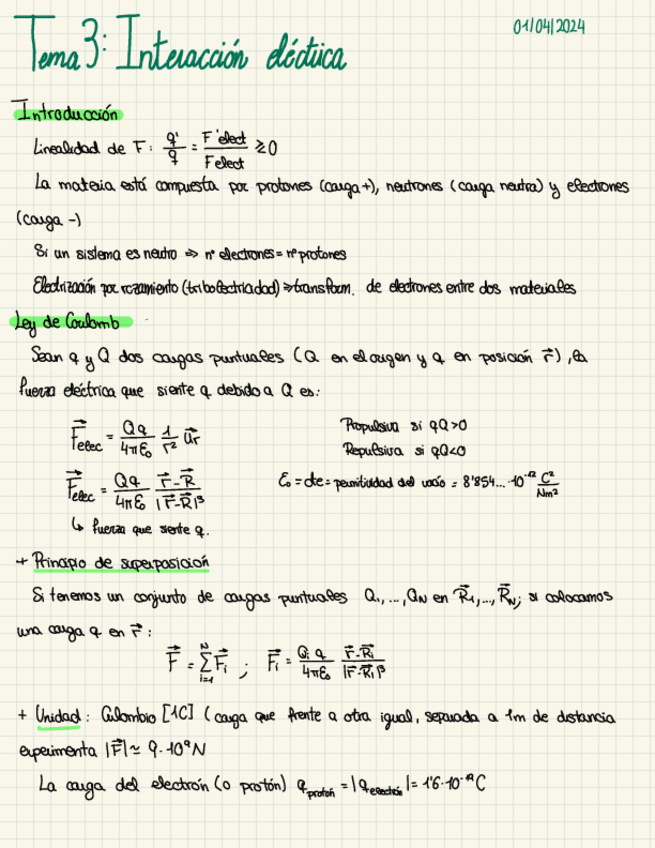 01/04/2024
Tema 3: Interacción eléctrica
Introducción
Linealidad de F: q'/q = F'elect/Felect ≥ 0
La materia está compuesta por protones (carga +), neutrones (carga neutra) y electrones
(carga -)
Si un sistema es neutro ⇒ nº electrones = nº protones
Electrización por rozamiento (triboelectricidad) ⇒ transform. de electrones entre dos materiales
Ley de Coulomb
Sean q y Q dos cargas puntuales (Q en el origen y q en posición r⃗), la
fuerza eléctrica que siente q debido a Q es:
F⃗elec = Qq/4πε₀ 1/r² u⃗r
Propulsiva si qQ>0
Repulsiva si qQ<0
F⃗elec = Qq/4πε₀ (r⃗-R⃗)/|r⃗-R⃗|³
ε₀ = cte = permitividad del vacío = 8'854... · 10⁻¹² C²/Nm²
↳ fuerza que siente q.
+ Principio de superposición
Si tenemos un conjunto de cargas puntuales Q₁, ..., QN en R⃗₁, ..., R⃗N; si colocamos
una carga q en r⃗:
F⃗ = ∑ᵢ₌₁ᴺ F⃗ᵢ ; F⃗ᵢ = Qᵢq/4πε₀ (r⃗-R⃗ᵢ)/|r⃗-R⃗ᵢ|³
+ Unidad: Culombio [1C] (carga que frente a otra igual, separada a 1m de distancia
experimenta |F⃗| ≃ 9·10⁹ N
La carga del electrón (o protón) q protón = |q electrón| = 1'6·10⁻¹⁹ C